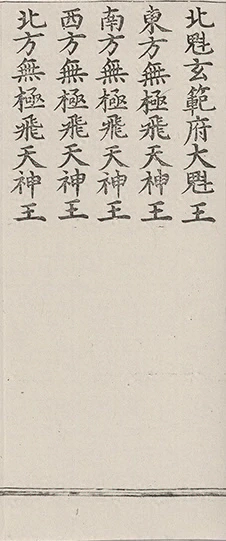 北魁玄範府大魁王
東方無極飛天神王
南方無極飛天神王
西方無極飛天神王
北方無極飛天神王